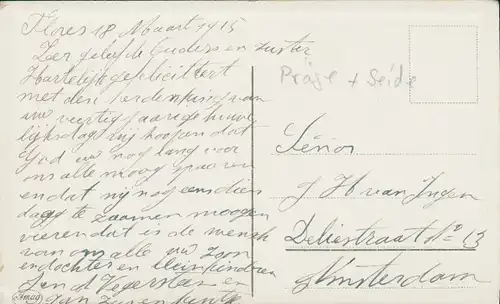 Flores 18 Maart 1915
Zeer geliefde Ouders en zuster
Hartelijk gefeliciteert
met den herdenking van
uw veertig jaarige huwe
lijksdag wij hoopen dat
God uw nog lang voor
ons alle moog spaaren
en dat wij nog eens dien
dag te zaamen moogen
vieren dat is de wensch
van ons alle uw zoon
en dochter en kleinkindren
Jan
en
Präge + Seide
Señor
J H van Ingen
Delistraat No 13
Amsterdam